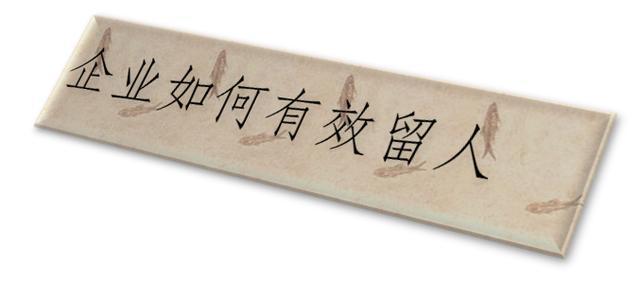 企业如何有效留人